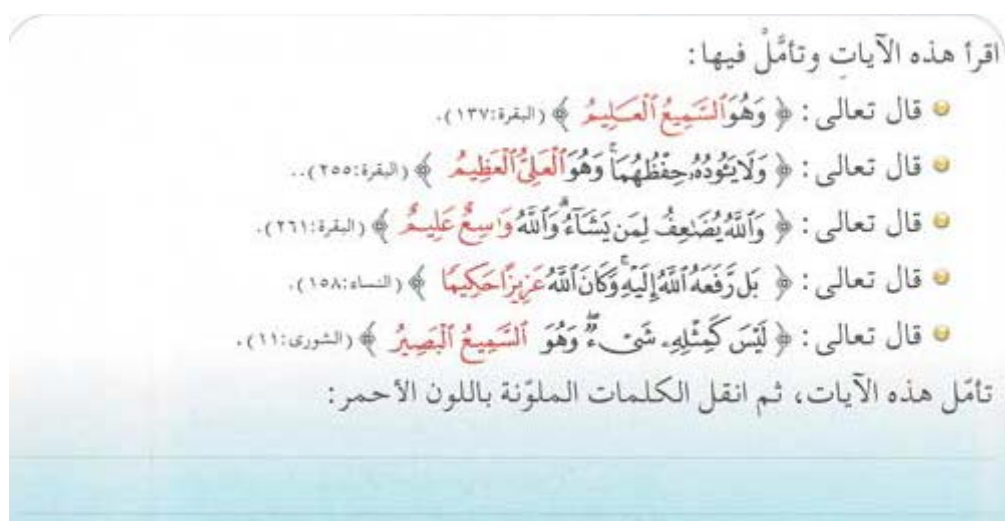 اقرأ هذه الآياتِ وتأمَّلْ فيها:
قال تعالى: ﴿ وَهُوَ ٱلسَّمِيعُ ٱلْعَلِيمُ ﴾ (البقرة:١٣٧).
قال تعالى: ﴿ وَلَا يَـُٔودُهُۥ حِفْظُهُمَا ۚ وَهُوَ ٱلْعَلِىُّ ٱلْعَظِيمُ ﴾ (البقرة:٢٥٥)..
قال تعالى: ﴿ وَٱللَّهُ يُضَٰعِفُ لِمَن يَشَآءُ ۗ وَٱللَّهُ وَٰسِعٌ عَلِيمٌ ﴾ (البقرة:٢٦١).
قال تعالى: ﴿ بَل رَّفَعَهُ ٱللَّهُ إِلَيْهِ ۚ وَكَانَ ٱللَّهُ عَزِيزًا حَكِيمًا ﴾ (النساء:١٥٨).
قال تعالى: ﴿ لَيْسَ كَمِثْلِهِۦ شَىْءٌ ۖ وَهُوَ ٱلسَّمِيعُ ٱلْبَصِيرُ ﴾ (الشورى:١١).
تأمّل هذه الآيات، ثم انقل الكلمات الملوّنة باللون الأحمر: